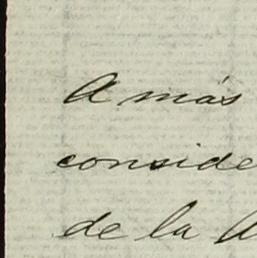 A más
conside
de la A